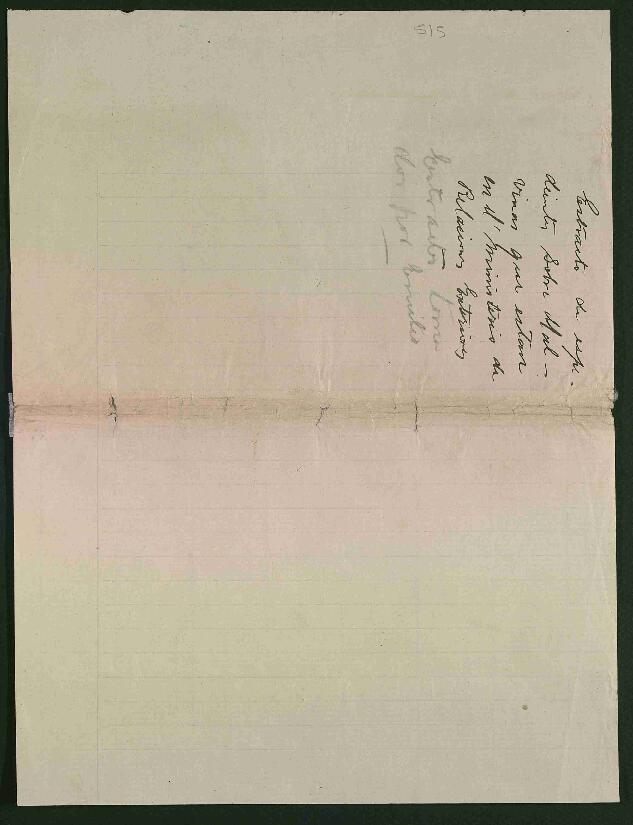 515
Extracto de espe-
dientes sobre Mal-
vinas que estan
en el Ministerio de
Relaciones Exteriores
Extractos toma
dos por Emilio